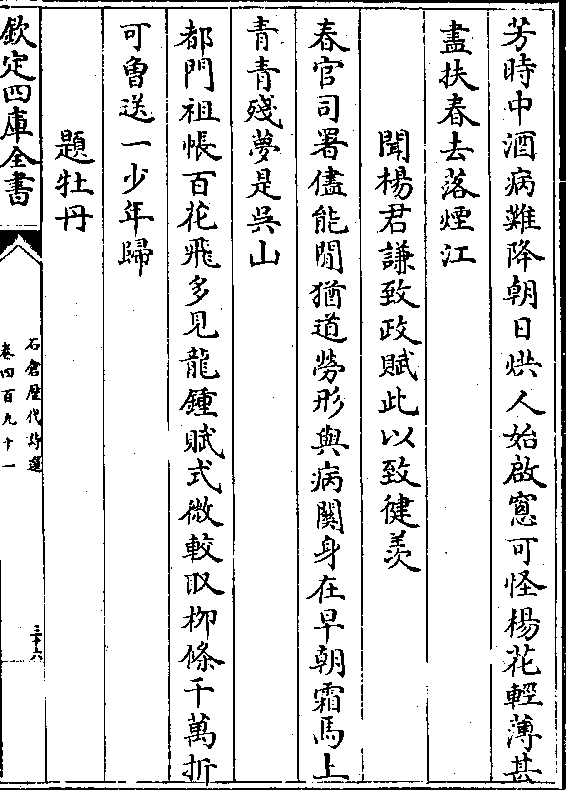 芳時中酒病難降朝日烘人始啟窻可怪楊花輕薄甚
盡扶春去落煙江
聞楊君謙致政賦此以致健羨
春官司署儘能閒猶道勞形與病關身在早朝霜馬上
青青殘夢是吳山
都門祖帳百花飛多見龍鍾賦式微較取栁條千萬折
可曾送一少年歸
題牡丹
欽定四庫全書
石倉歷代詩選
卷四百九十一
三十六